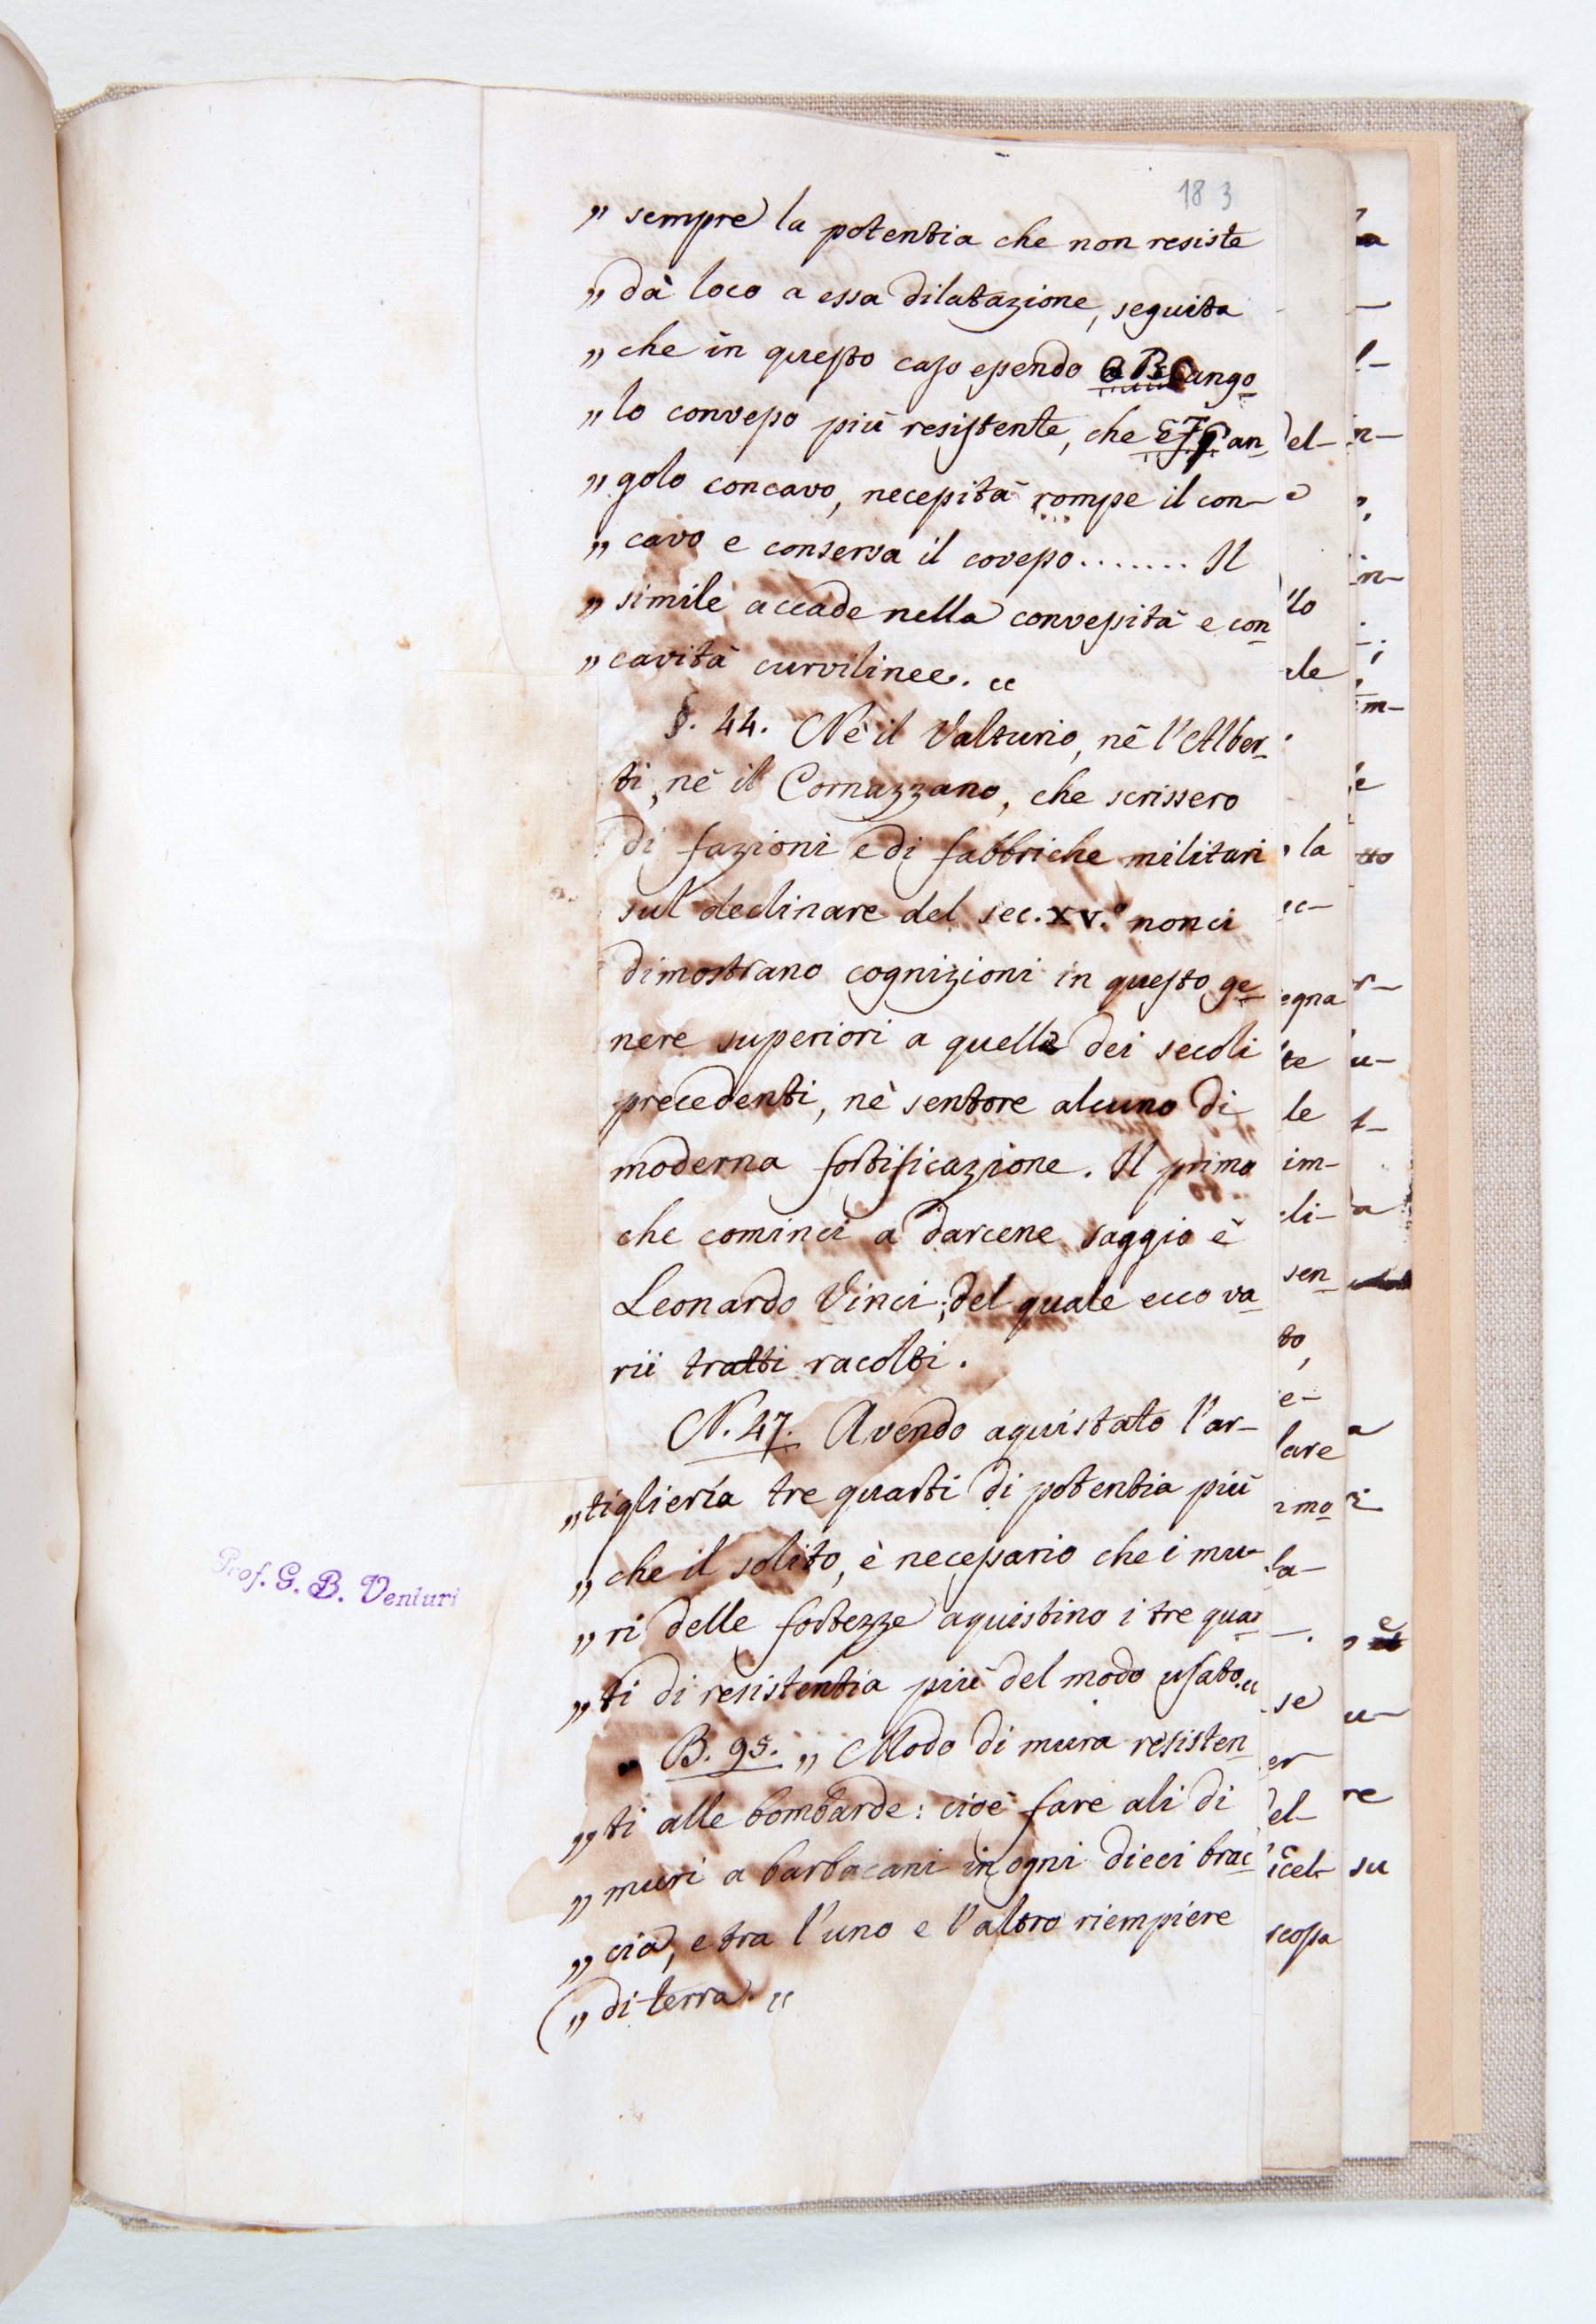 183
„ sempre la potentia che non resiste
„ dà loco a essa dilatazione, seguita
„ che in questo caso essendo ango-
„ lo convesso più resistente, che an-
„ golo concavo, necessità rompe il con-
„ cavo e conserva il covesso....... Il
„ simile accade nella convessità e con-
„ cavità curvilinee. “
§. 44. Nè il Valturio, nè l'Alber-
ti, nè il Cornazzano, che scrissero
di fazioni e di fabbriche militari
sul declinare del sec. XV.º non ci
dimostrano cognizioni in questo ge-
nere superiori a quelle dei secoli
precedenti, nè sentore alcuno di
moderna fortificazione. Il primo
che cominci a darcene saggio è
Leonardo Vinci; del quale ecco va-
rii tratti racolti.
N. 47. Avendo aquistato l'ar-
„ tiglieria tre quarti di potentia più
„ che il solito, è necessario che i mu-
„ ri delle fortezze aquistino i tre quar-
„ ti di resistentia più del modo usato. “
„ B. 95. „ Modo di mura resisten-
„ ti alle bombarde: cioè fare ali di
„ muri a barbacani in ogni dieci brac-
„ cia, e tra l'uno e l'altro riempiere
(„ di terra. “
Prof. G. B. Venturi